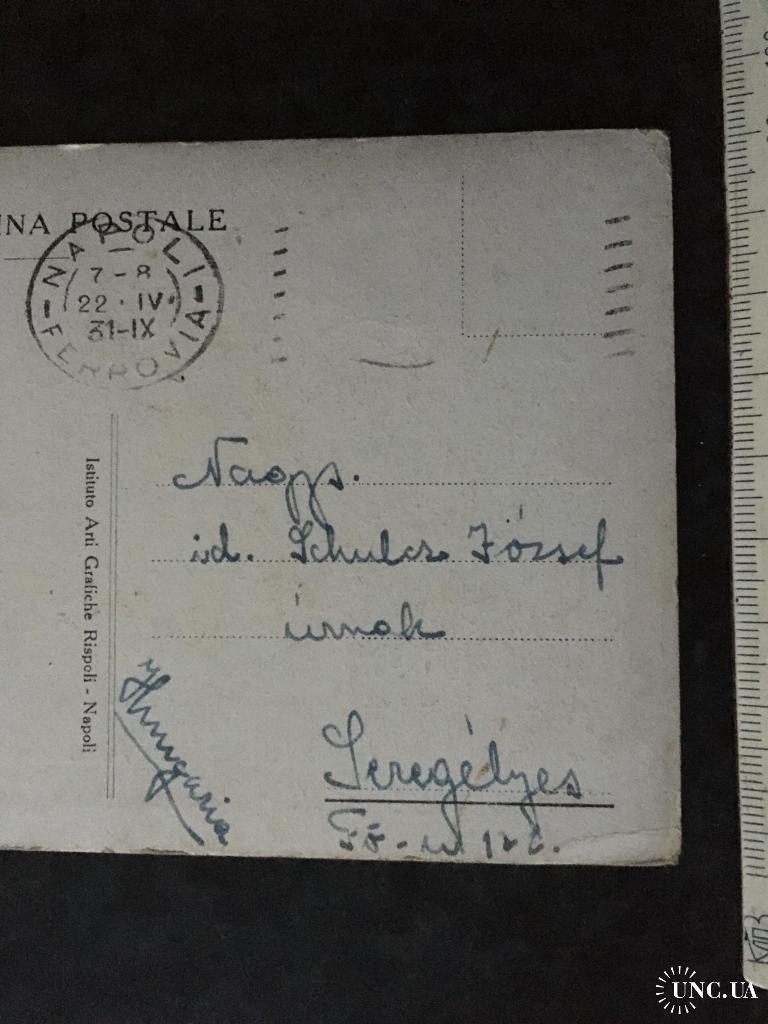 NA POSTALE
NAPOLI
7-8
22·IV·
31-IX
FERROVIA
Istituto Arti Grafiche Rispoli - Napoli
Nags.
id. Schulcz József
úrnak
Hungaria
Seregélyes
Fő-u
UNC.UA